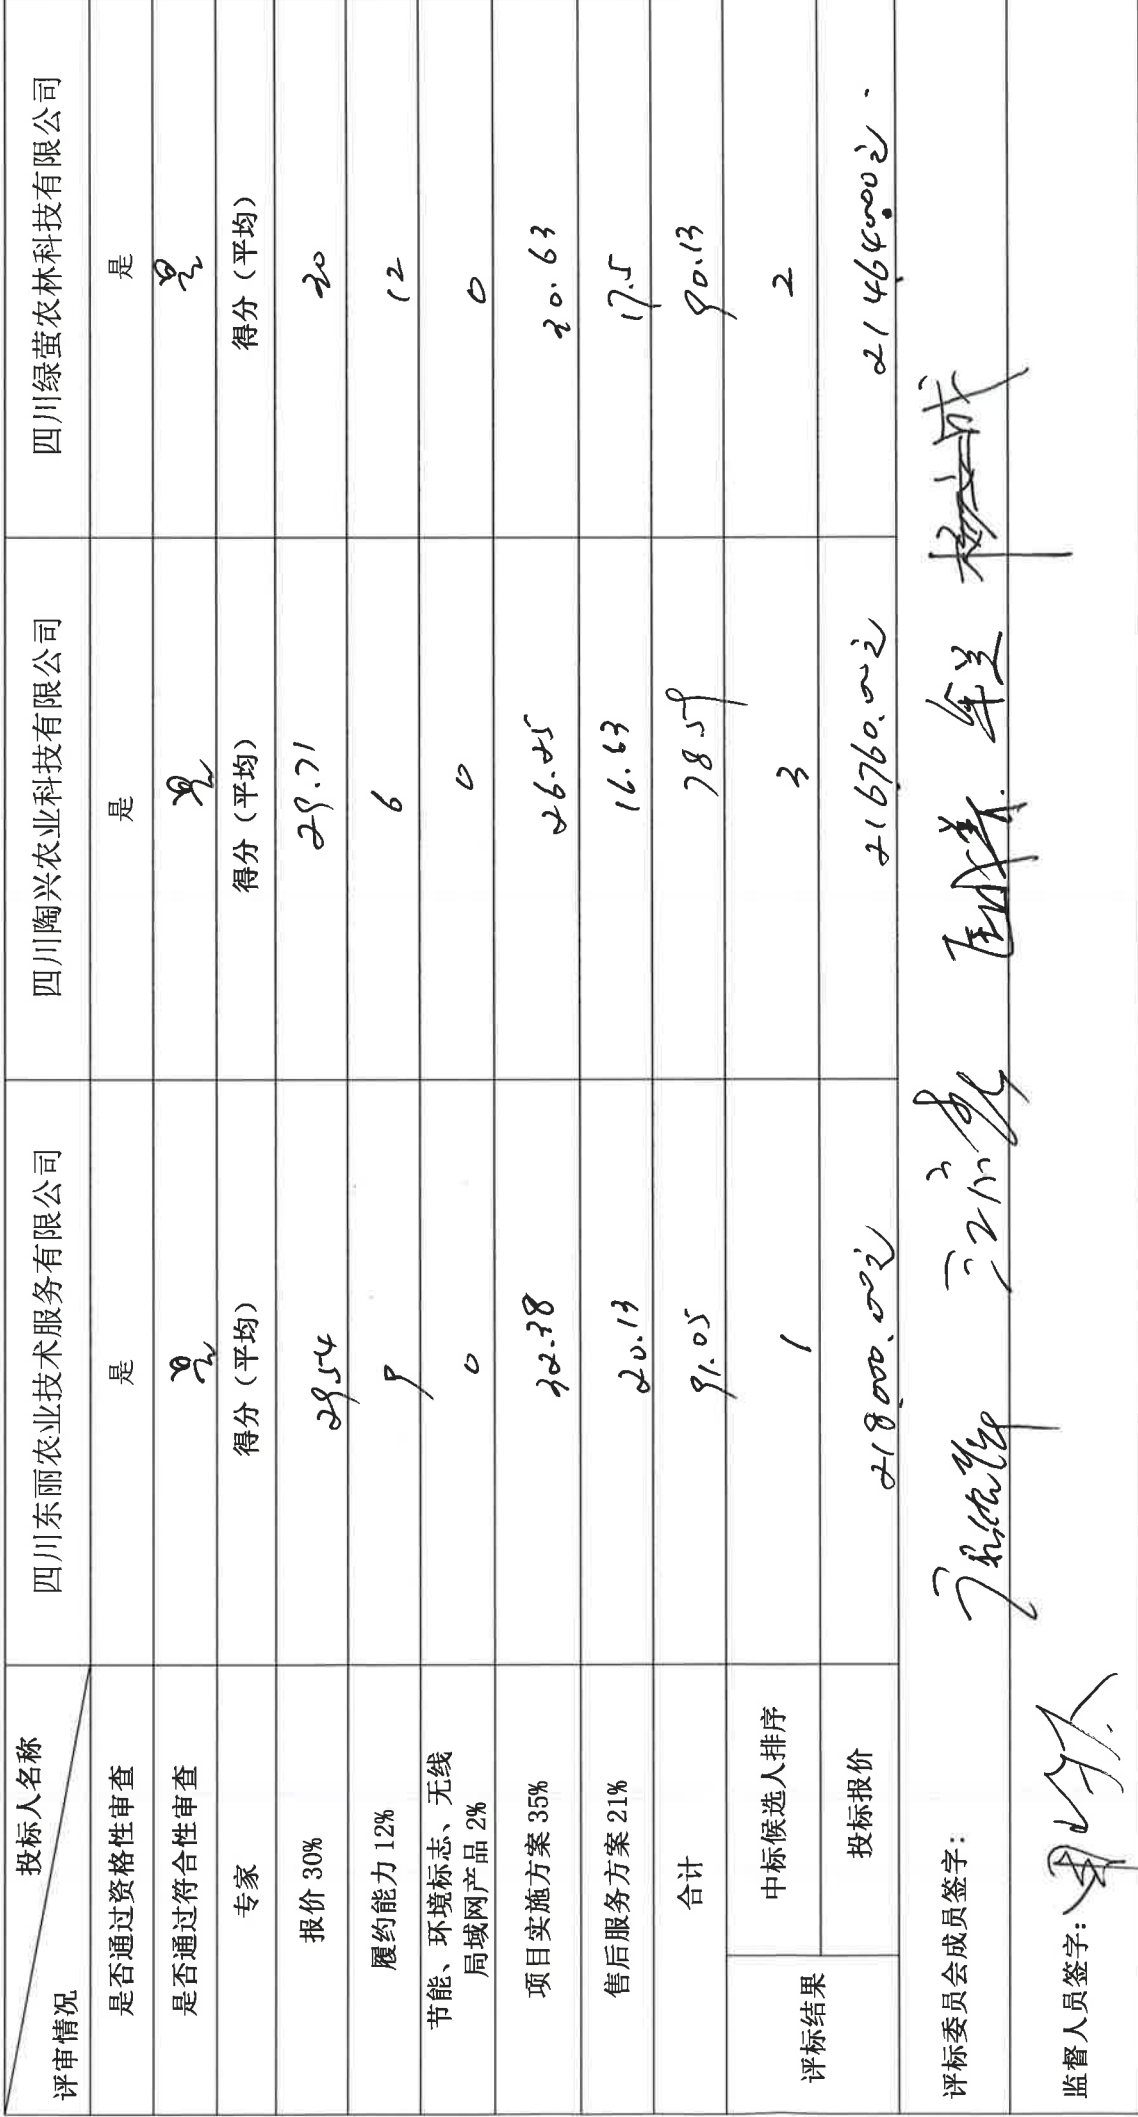 投标人名称 四川东丽农业技术服务有限公司 四川陶兴农业科技有限公司 四川绿萤农林科技有限公司
评审情况
是否通过资格性审查 是 是 是
是否通过符合性审查 是 是 是
专家 得分（平均） 得分（平均） 得分（平均）
报价 30% 29.54 29.71 30
履约能力 12% 9 6 12
节能、环境标志、无线
局域网产品 2% 0 0 0
项目实施方案 35% 32.38 26.25 30.63
售后服务方案 21% 20.13 16.63 17.5
合计 91.05 78.59 90.13
评标结果
中标候选人排序 1 3 2
投标报价 218000.00元 216760.00元 214640.00元
评标委员会成员签字：
监督人员签字：